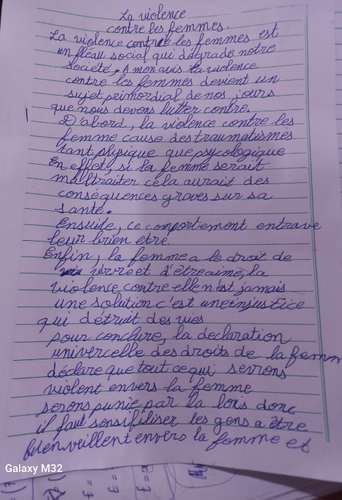 La violence
contre les femmes.
La violence contre les femmes est
un fléau social qui dégrade notre
société, à mon avis la violence
contre les femmes devient un
sujet primordial de nos jours
que nous devons lutter contre.
D'abord, la violence contre les
femme cause des traumatismes
tant physique que psycologique
En effet, si la femme serait
malltraiter cela aurait des
conséquences graves sur sa
santé.
Ensuite, ce comportement entrave
leur bien être.
Enfin, la femme a le droit de
vivre et d'être aimé, la
violence contre elle n'est jamais
une solution c'est une injustice
qui détruit des vies
pour conclure, la declaration
univercelle des droits de la femm
déclare que tout ce qui serons
violent envers la femme
serons punie par la lois donc
il faut sensibiliser les gens a être
bienveillent envers la femme et
Galaxy M32